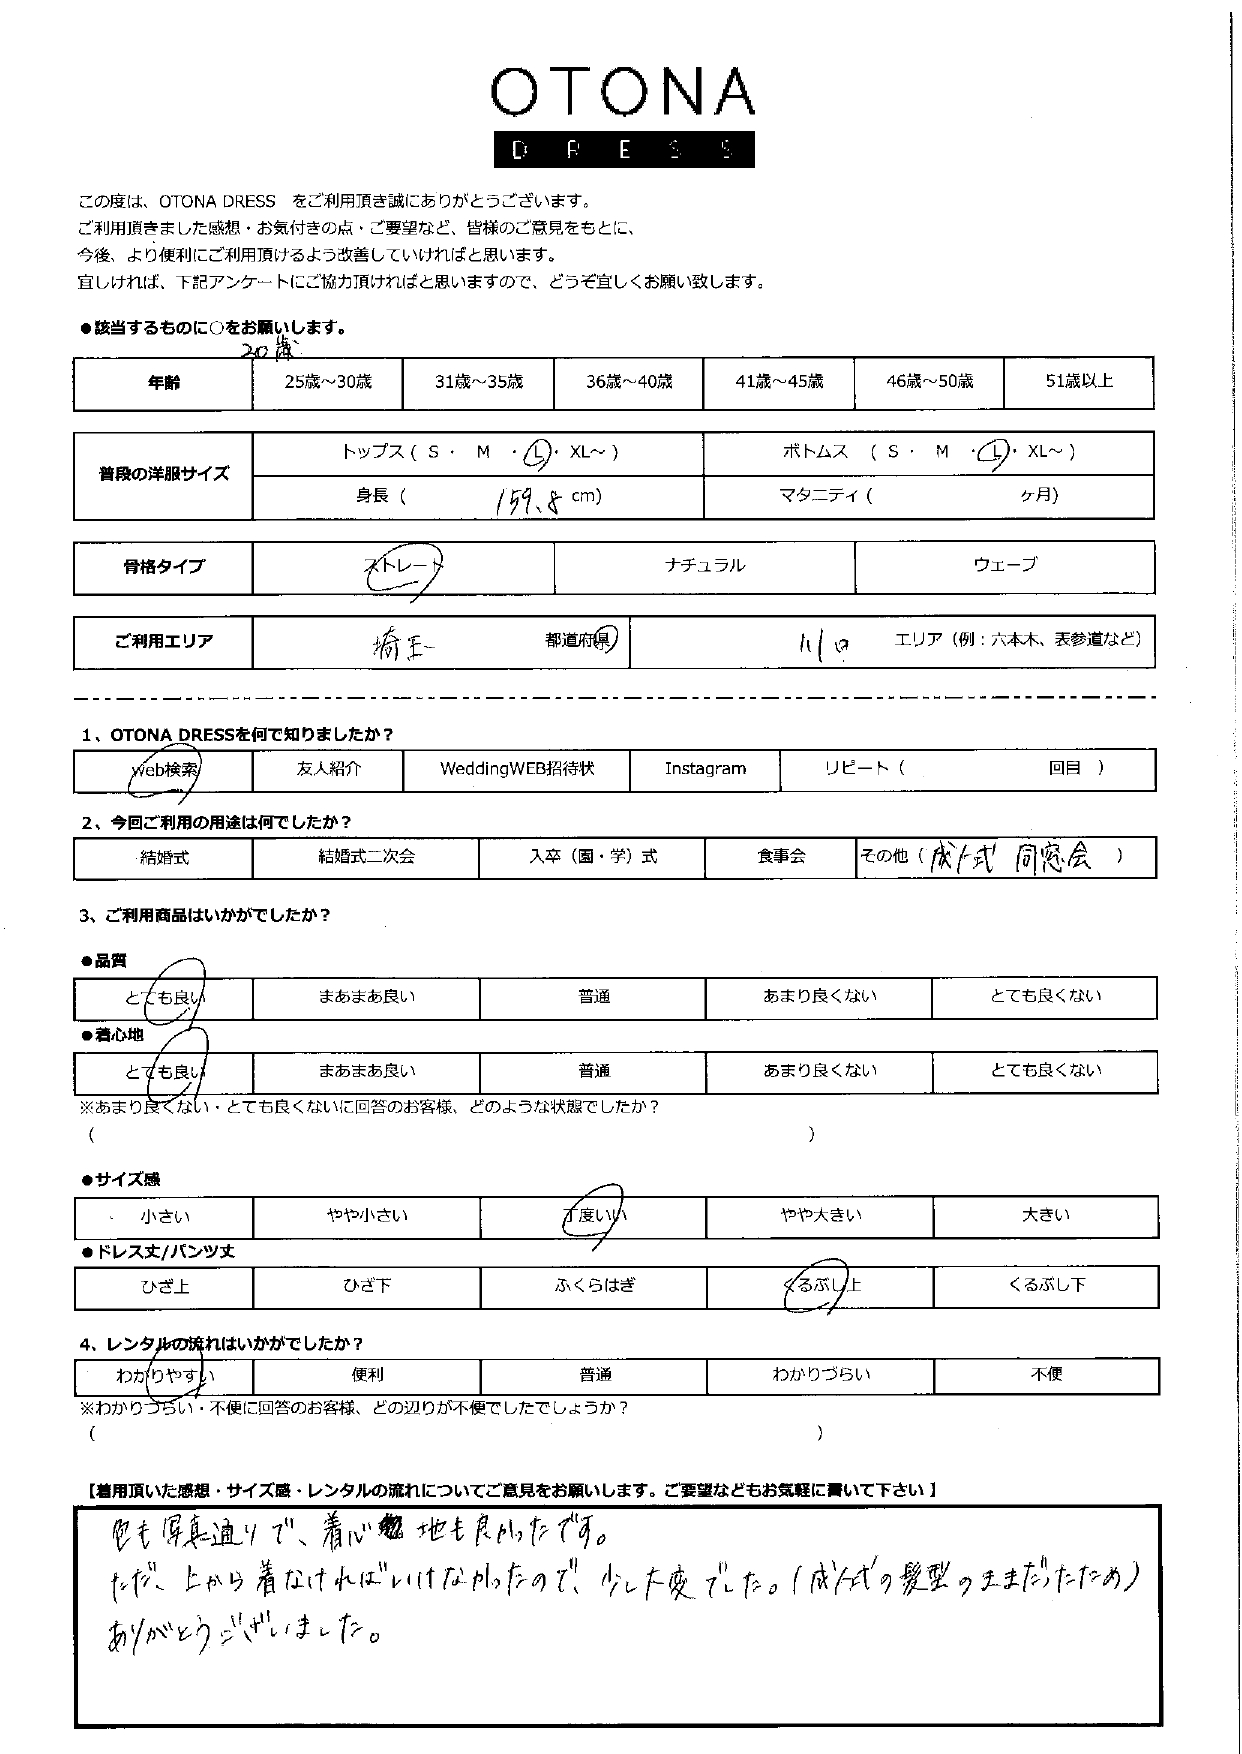 OTONA
DRESS
この度は、OTONA DRESS をご利用頂き誠にありがとうございます。
ご利用頂きました感想・お気付きの点・ご要望など、皆様のご意見をもとに、
今後、より便利にご利用頂けるよう改善していければと思います。
宜しければ、下記アンケートにご協力頂ければと思いますので、どうぞ宜しくお願い致します。
●該当するものに○をお願いします。
20歳
年齢 25歳～30歳 31歳～35歳 36歳～40歳 41歳～45歳 46歳～50歳 51歳以上
普段の洋服サイズ
トップス ( S ・ M ・ L ・ XL～ ) ボトムス ( S ・ M ・ L ・ XL～ )
身長 ( 159.8 cm) マタニティ ( ヶ月)
骨格タイプ ストレート ナチュラル ウェーブ
ご利用エリア 埼玉 都道府県 川口 エリア（例：六本木、表参道など）
1、OTONA DRESSを何で知りましたか？
Web検索 友人紹介 WeddingWEB招待状 Instagram リピート ( 回目 )
2、今回ご利用の用途は何でしたか？
結婚式 結婚式二次会 入卒（園・学）式 食事会 その他 ( 成人式 同窓会 )
3、ご利用商品はいかがでしたか？
●品質
とても良い まあまあ良い 普通 あまり良くない とても良くない
●着心地
とても良い まあまあ良い 普通 あまり良くない とても良くない
※あまり良くない・とても良くないに回答のお客様、どのような状態でしたか？
( )
●サイズ感
小さい やや小さい 丁度いい やや大きい 大きい
●ドレス丈/パンツ丈
ひざ上 ひざ下 ふくらはぎ くるぶし上 くるぶし下
4、レンタルの流れはいかがでしたか？
わかりやすい 便利 普通 わかりづらい 不便
※わかりづらい・不便に回答のお客様、どの辺りが不便でしたでしょうか？
( )
【着用頂いた感想・サイズ感・レンタルの流れについてご意見をお願いします。ご要望などもお気軽に書いて下さい】
色も写真通りで、着心地も良かったです。
ただ、上から着なければいけなかったので、少し大変でした。(成人式の髪型のままだったため)
ありがとうございました。